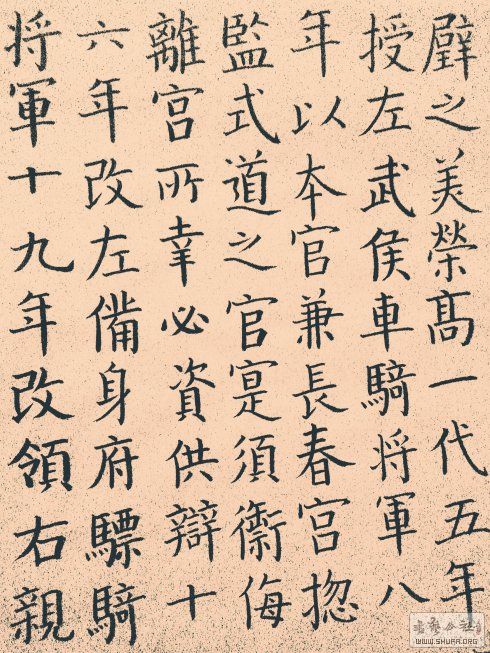 璧之美榮髙一代五年
授左武侯車騎将軍八
年以夲官兼長春宮揔
監式道之官寔須衞侮
離宮所幸必資供辯十
六年改左備身府驃騎
将軍十九年改領右親
WWW.SHUFA.ORG